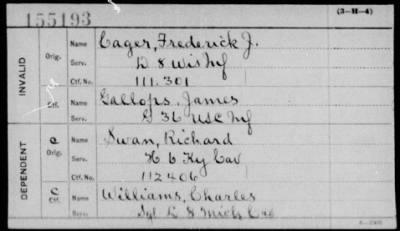 155193 (3-H-4)
INVALID
Orig. Name Cager, Frederick J.
Serv. D 8 Wis Inf
Ctf. No. 111.301
Ctf. Name Gallops, James
Serv. G 36 USC Inf
DEPENDENT
C Orig. Name Swan, Richard
Serv. H 6 Ky Cav
Ctf. No. 112406
C Ctf. Name Williams, Charles
Serv. Sgt L 8 Mich Cav